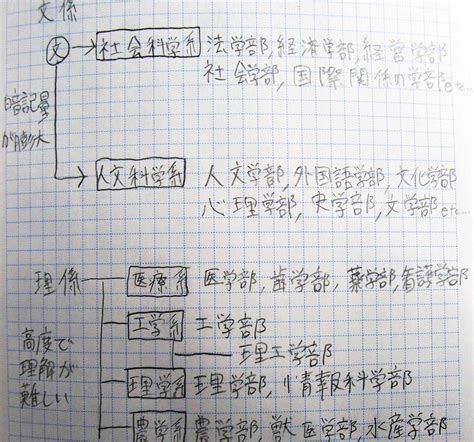 文係
文 社会科学系 法学部, 経済学部, 経営学部
社会学部, 国際関係の学部etc...
暗記量
が膨大
人文科学系 人文学部, 外国語学部, 文化学部
心理学部, 史学部, 文学部etc...
理係 医療系 医学部, 歯学部, 薬学部, 看護学部
工学系 工学部
理工学部
高度で
理解が
難しい
理学系 理学部, 情報科学部
農学系 農学部, 獣医学部, 水産学部